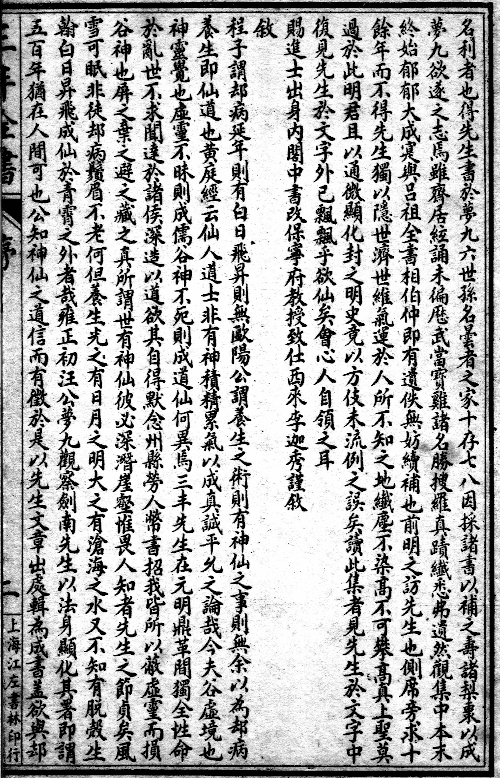 名利者也得先生書於夢九六世孫名曇者之家十存七八因採諸書以補之壽諸梨棗以成
夢九欲逐之志焉雖齊居經誦未徧歷武當寶雞諸名勝搜羅真蹟纖悉弗遺然觀集中本末
終始郁郁大成寞與呂祖全書相伯仲即有遺佚無妨續補也前明之訪先生也側席旁求十
餘年而不得先生獨以隱世濟世維氣運於人所不知之地纖塵不染高不可攀高真上聖莫
過於此明君且以通微顯化封之明史竟以方伎末流例之誤矣讀此集者見先生於文字中
復見先生於文字外已飄飄乎欲仙矣會心人自領之耳
賜進士出身內閣中書改保寧府教授致仕西來李迦秀謹敘
敘
程子謂却病延年則有白日飛昇則無歐陽公謂養生之術則有神仙之事則無余以為却病
養生即仙道也黃庭經云仙人道士非有神積精累氣以成真誠平允之論哉今夫谷虛境也
神靈覺也虛靈不昧則成儒谷神不死則成道仙何異焉三丰先生在元明鼎革間獨全性命
於亂世不求聞達於諸侯深造以道欲其自得默念州縣勞人幣書招我皆所以蔽虛靈而損
谷神也屏之棄之避之藏之真所謂世有神仙彼必深潛崖壑惟畏人知者先生之節貞矣風
雪可眠非徒却病鬚眉不老何但養生先之有日月之明大之有滄海之水又不知有脫殼生
翰白日昇飛成仙於青霄之外者哉雍正初汪公夢九觀察劍南先生以法身顯化其署即謂
五百年猶在人間可也公知神仙之道信而有徵於是以先生文章出處輯為成書蓋欲與却
三丰全書
序
二
上海江左書林印行